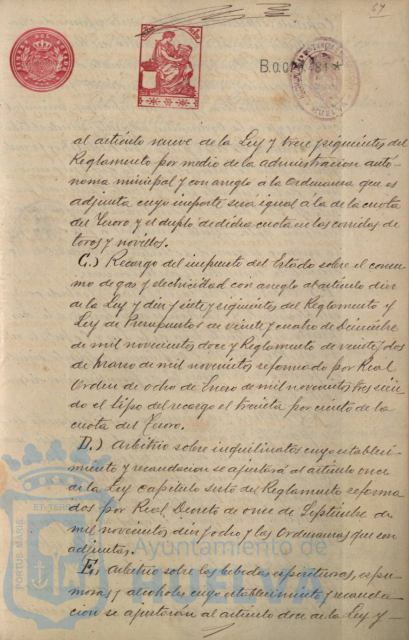 67
B.0.0
al artículo nueve de la Ley y trece y siguientes del
Reglamento por medio de la administracion autó-
noma municipal y con arreglo á la Ordenanza que es
adjunta cuyo importe será igual á la de la cuota
del Tesoro y el duplo de dicha cuota en las corridas de
toros y novillos.
C.) Recargo del impuesto del Estado sobre el consu-
mo de gas y electricidad con areglo al artículo diez
de la Ley y diez y siete y siguientes del Reglamento y
Ley de Presupuestos de veinte y cuatro de Diciembre
de mil novecientos doce y Reglamento de veinte y dos
de Marzo de mil novecientos reformado por Real
Orden de ocho de Enero de mil novecientos tres sien-
do el tipo del recargo el treinta por ciento de la
cuota del Tesoro.
D.) Arbitrio sobre inquilinatos cuyo estableci-
miento y recaudacion se ajustará al artículo once
de la Ley capítulo sexto del Reglamento reforma
dos por Real Decreto de once de Septiembre de
mil novecientos diez y ocho y las Ordenanzas que son
adjuntas.
E. Arbitrio sobre las bebidas espirituosas, espu-
mosas y alcoholes cuyo establecimiento y recauda-
cion se ajustarán al artículo doce de la Ley y
PORTUS MARIS
ET TERRÆ
Ayuntamiento de